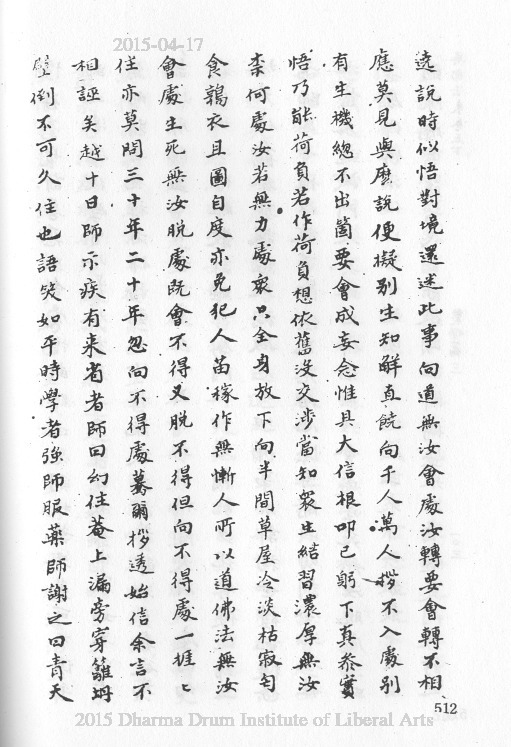 2015-04-17
遶說時似悟對境還迷此事向道無汝會處汝轉要會轉不相
應莫見與麼說便擬別生知解直饒向千人萬人拶不入處別
有生機緫不出箇要會成妄念惟具大信根叩己躬下真參實
悟乃能荷負若作荷負想依舊沒交涉當知眾生結習濃厚無汝
柰何處汝若無力處眾只全身放下向半間草屋冷淡枯寂匄
食鶉衣且圖自度亦免犯人苗稼作無慚人所以道佛法無汝
會處生死無汝脫處既會不得又脫不得但向不得處一捱〻
住亦莫問三十年二十年忽向不得處驀爾拶透始信余言不
相誣矣越十日師示疾有来省者師曰幻住菴上漏旁穿籬坍
壁倒不可久住也語笑如平時學者強師服藥師謝之曰青天
512
2015 Dharma Drum Institute of Liberal Arts